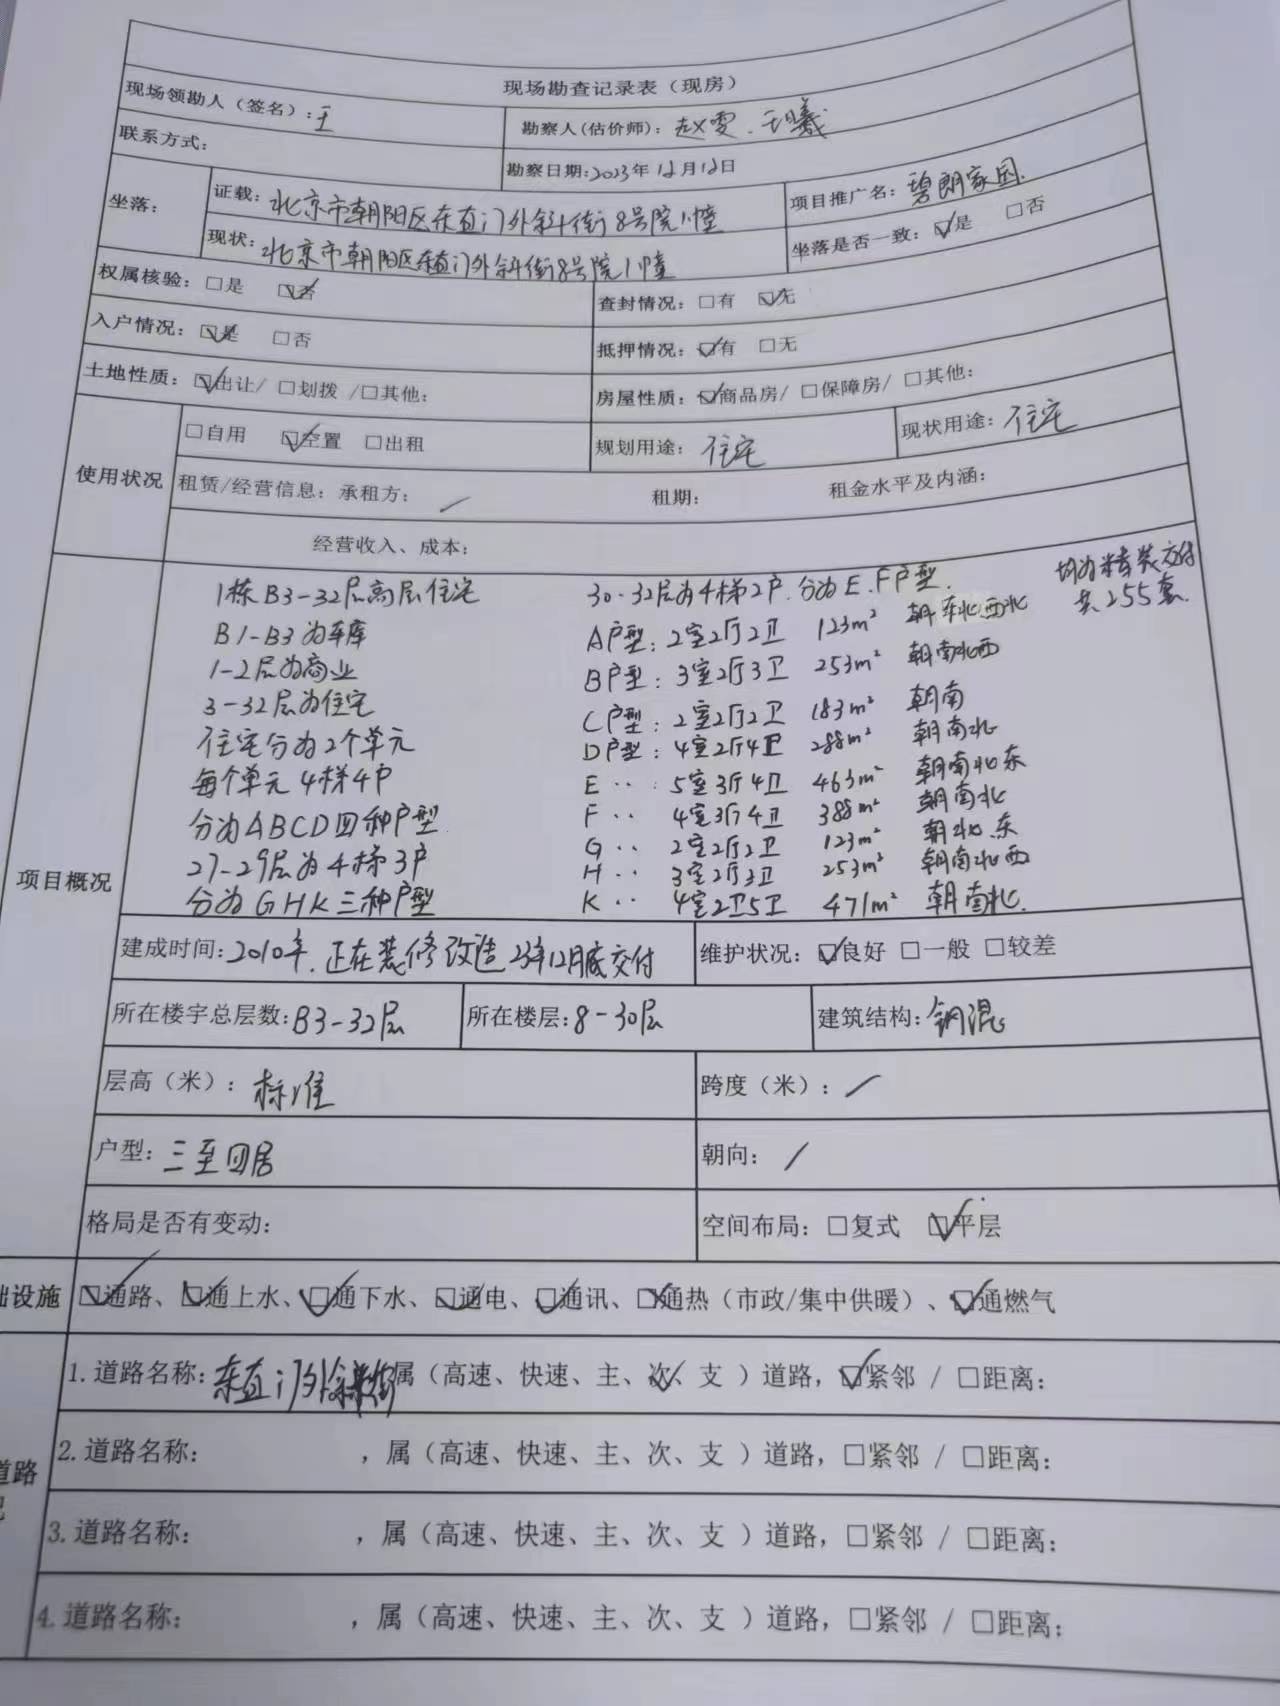 现场勘查记录表（现房）
现场领勘人（签名）：王
勘察人(估价师)：赵雯、王曦
联系方式：
勘察日期:2023年12月12日
坐落：
证载：北京市朝阳区东直门外斜街8号院1幢
项目推广名：碧朗家园
现状：北京市朝阳区东直门外斜街8号院1幢
坐落是否一致：☑是 □否
权属核验：□是 ☑否
查封情况：□有 ☑无
入户情况：☑是 □否
抵押情况：☑有 □无
土地性质：☑出让/ □划拨 /□其他:
房屋性质：☑商品房/ □保障房/ □其他:
使用状况
□自用 ☑空置 □出租
规划用途： 住宅
现状用途：住宅
租赁/经营信息：承租方： / 租期： 租金水平及内涵：
经营收入、成本：
项目概况
1栋B3-32层高层住宅
B1-B3为车库
1-2层为商业
3-32层为住宅
住宅分为2个单元
每个单元4梯4户
分为ABCD四种户型
27-29层为4梯3户
分为GHK三种户型
30-32层为4梯2户.分为E.F户型.
均为精装交付
共255套.
A户型：2室2厅2卫 123m² 朝东北西北
B户型：3室2厅3卫 253m² 朝南北西
C户型：2室2厅2卫 183m² 朝南
D户型：4室2厅4卫 288m² 朝南北
E ‥ ：5室3厅4卫 463m² 朝南北东
F ‥ 4室3厅4卫 388m² 朝南北
G ‥ 2室2厅2卫 123m² 朝北东
H ‥ 3室2厅3卫 253m² 朝南北西
K ‥ 4室2卫5卫 471m² 朝南北.
建成时间：2010年.正在装修改造 23年12月底交付
维护状况：☑良好 □一般 □较差
所在楼宇总层数：B3-32层
所在楼层：8-30层
建筑结构：钢混
层高（米）：标准
跨度（米）：/
户型：三至四居
朝向： /
格局是否有变动：
空间布局：□复式 ☑平层
础设施
☑通路、☑通上水、☑通下水、☑通电、☑通讯、☑通热（市政/集中供暖）、☑通燃气
道路
1.道路名称：东直门外斜街属（高速、快速、主、次✓、支 ）道路，☑紧邻 / □距离：
2.道路名称： ，属（高速、快速、主、次、支 ）道路，□紧邻 / □距离：
3.道路名称： ，属（高速、快速、主、次、支 ）道路，□紧邻 / □距离：
4.道路名称： ，属（高速、快速、主、次、支 ）道路，□紧邻 / □距离：